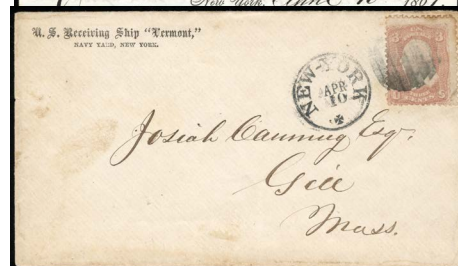 New York, 186
U. S. Receiving Ship "Vermont,"
NAVY YARD, NEW YORK.
NEW-YORK
APR
10
3 3
Josiah Canning Esqr.
Gill
Mass.